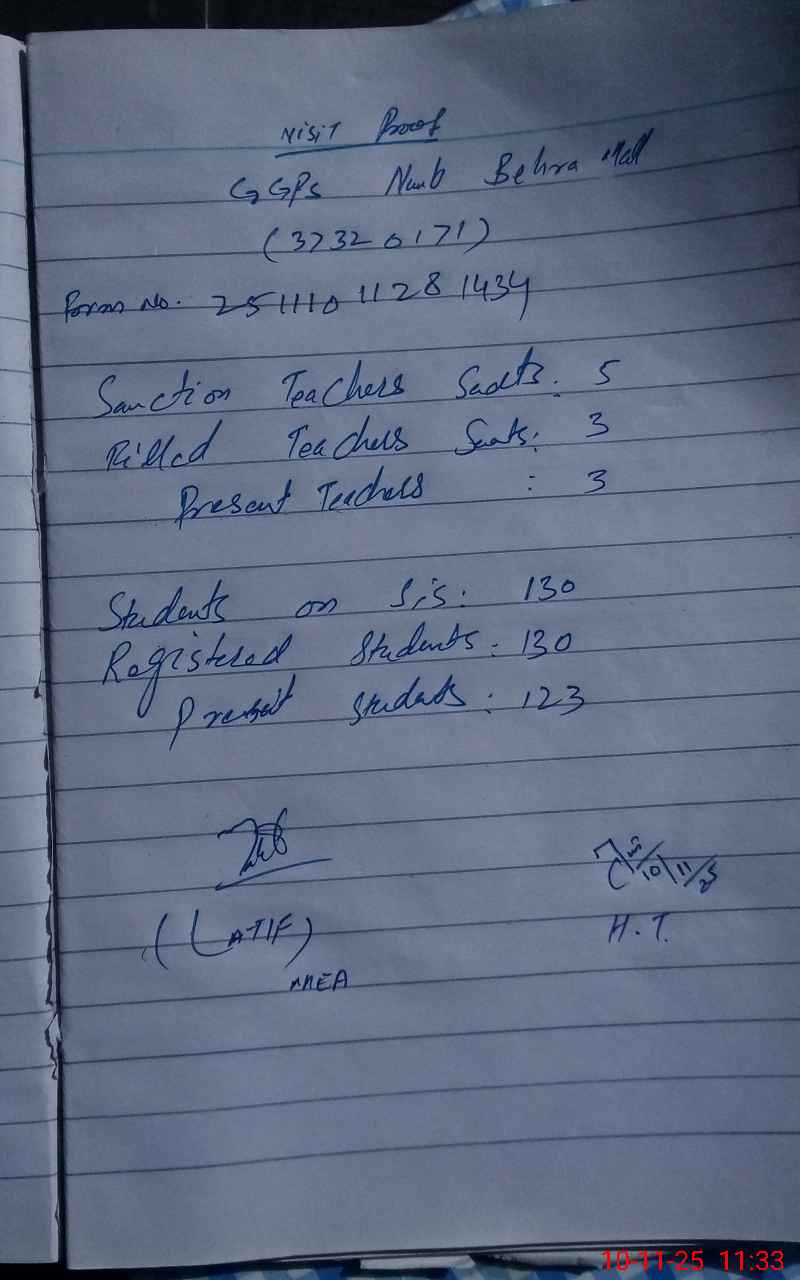 Visit Proof
GGPs Namb Behra Mall
(37320171)
Form No. 251110 1128 1434
Sanction Teachers Seats: 5
Filled Teachers Seats: 3
Present Teachers : 3
Students on Sis: 130
Registered Students: 130
Present Students: 123
10/11/25
(LATIF)
H.T.
MEA
10-11-25 11:33